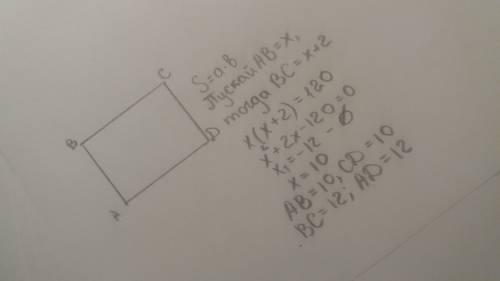 B
C
D
A
S=a·b
Пускай AB=x,
тогда BC=x+2
x(x+2)=120
x²+2x-120=0
x₁=-12 -
x=10
AB=10, CD=10
BC=12; AD=12